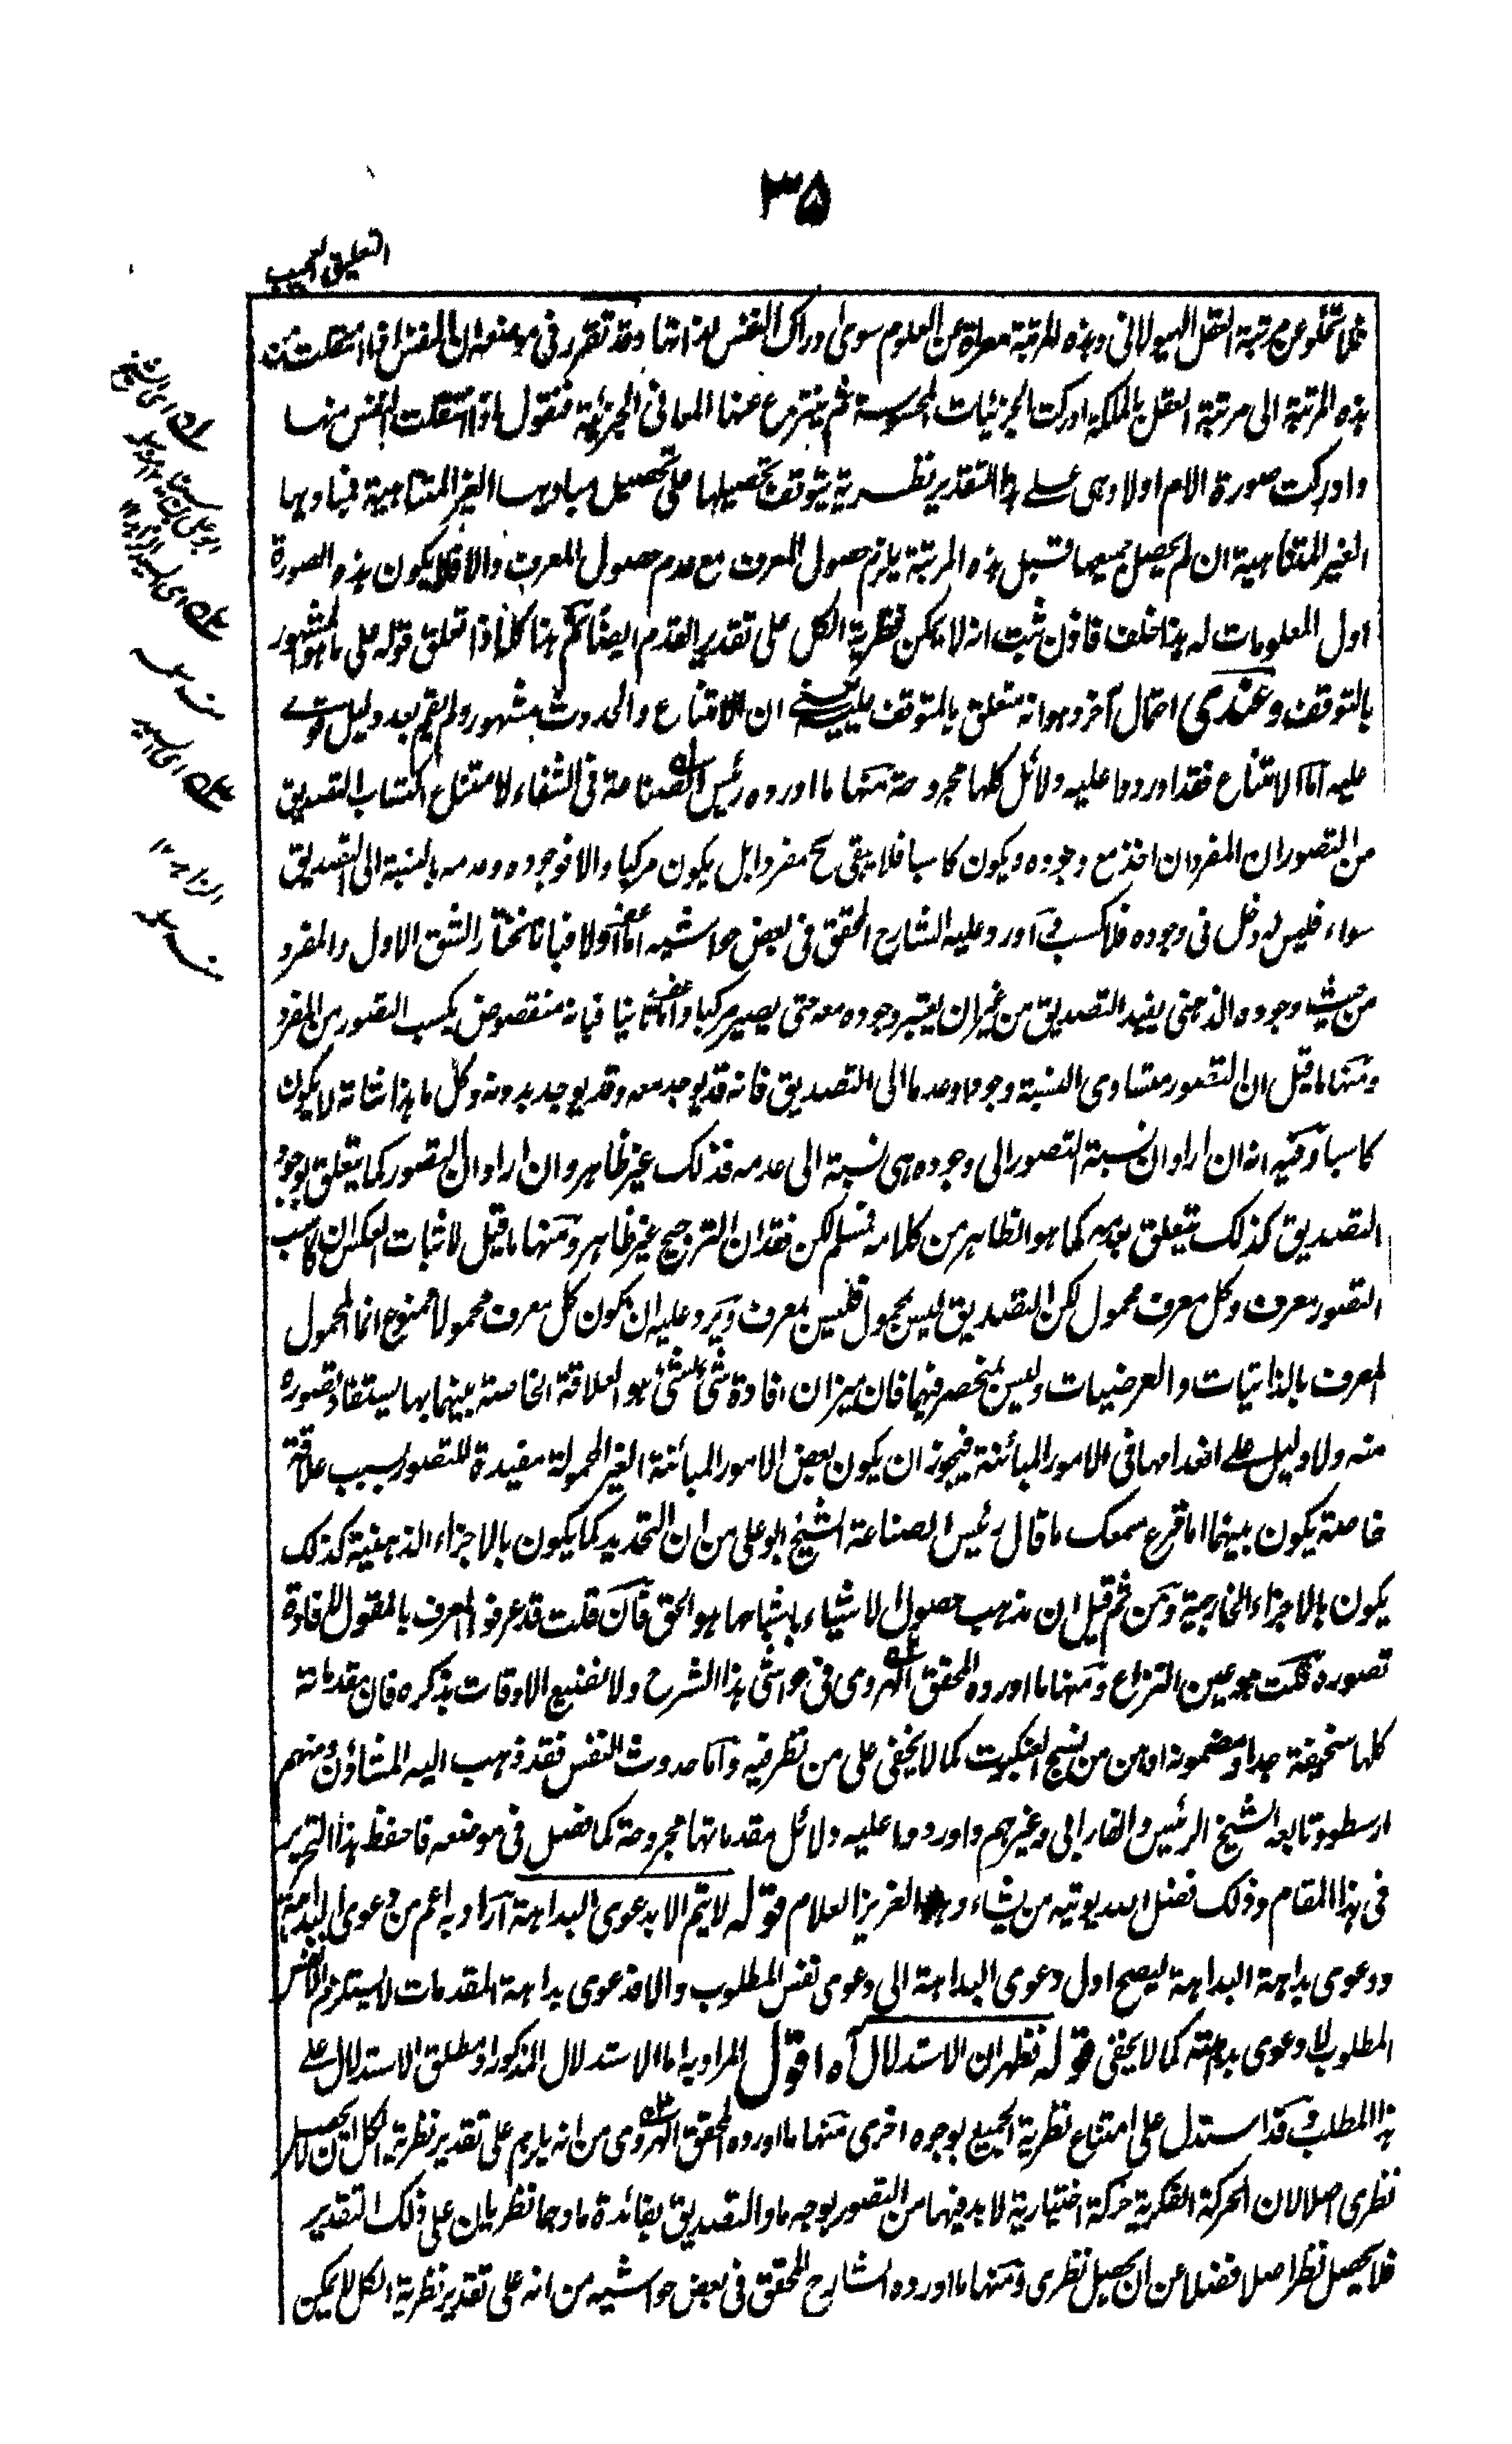 ۳۵
التعليق العجيب
فلا تخلو عن مرتبة العقل الهيولانى وهذه المرتبة معراة عن العلوم سوى ادراك النفس بذاتها وقد تقرر فى موضعه ان النفس اذا انتقلت من
هذه المرتبة الى مرتبة العقل بالملكة ادركت الجزئيات المحسوسة ثم ينتزع عنها المعانى الجزئية فنقول اذا انتقلت النفس منها
وادركت صورة الام اولا وهى على هذا التقدير نظرية يتوقف تحصيلها على تحصيل مباديها الغير المتناهية فمباديها
الغير المتناهية ان لم يحصل جميعها قبل هذه المرتبة يلزم حصول المعرف مع عدم حصول المعرف والا فلا يكون هذه الصورة
اول المعلومات له هذا خلف فاذن ثبت انه لا يمكن نظرية الكل على تقدير القدم ايضا ثم هذا كله اذا تعلق قوله على ما هو المشهور
بالتوقف وعندى احتمال آخر وهو انه متعلق بالمتوقف عليه يعنى ان الامتناع والحدوث مشهور ولم يقم بعد دليل قوى
عليه اما الامتناع فقد اوردوا عليه دلائل كلها مجروحة منها ما اورده رئيس الصناعة فى الشفاء لامتناع اكتساب التصديق
من التصور ان المفرد ان اخذ مع وجوده ويكون كاسبا فلا يبقى ح مفردا بل يكون مركبا والا فوجوده وعدمه بالنسبة الى التصديق
سواء فليس له دخل فى وجوده فلا كسب فيه آورد عليه الشارح المحقق فى بعض حواشيه اما اولا فبانا نختار الشق الاول والمفرد
من حيث وجوده الذهنى يفيد التصديق من غير ان يعتبر وجوده معه حتى يصير مركبا واما ثانيا فبانه منقوض بكسب التصور من المفرد
ومنها ما قيل ان التصور متساوى النسبة وجودا وعدما الى التصديق فانه قد يوجد معه وقد يوجد بدونه وكل ما هذا شانه لا يكون
كاسبا وفيه انه ان اراد ان نسبة التصور الى وجوده هى نسبة الى عدمه فذلك غير ظاهر وان اراد ان التصور كما يتعلق بوجود
التصديق كذلك يتعلق بعدمه كما هو الظاهر من كلامه فمسلم لكن فقدان الترجيح غير ظاهر ومنها ما قيل لاثبات العكس ان كاسب
التصور معرف وكل معرف محمول لكن التصديق ليس بمحمول فليس بمعرف ويرد عليه ان كون كل معرف محمولا ممنوع انما المحمول
المعرف بالذاتيات والعرضيات وليس بمنحصر فيهما فان ميزان افادة شئ لشئ هو العلاقة الخاصة بينهما بها يستفاد تصوره
منه ولا دليل على انعدامها فى الامور المبائنة فيجوز ان يكون بعض الامور المبائنة الغير المحمولة مفيدة للتصور بسبب علاقة
خاصة يكون بينهما اما قرع سمعك ما قال رئيس الصناعة الشيخ ابو على من ان التحديد كما يكون بالاجزاء الذهنية كذلك
يكون بالاجزاء الخارجية ومن ثم قيل ان مذهب حصول الاشياء باشباحها هو الحق فان قلت قد عرفوا المعرف بالمقول لافادة
تصوره قلت هو عين النزاع ومنها ما اورده المحقق الهروى فى حواشى هذا الشرح ولا نضيع الاوقات بذكره فان مقدماته
كلها سخيفة جدا ومضمونه اوهن من نسج العنكبوت كما لا يخفى على من نظر فيه واما حدوث النفس فقد ذهب اليه المشاؤن ومنهم
ارسطو وتابعه الشيخ الرئيس والفارابى وغيرهم واوردوا عليه دلائل مقدماتها مجروحة كما فصل فى موضعه فاحفظ هذا التحرير
فى هذا المقام وذلك فضل الله يوتيه من يشاء وهو العزيز العلام قوله لا يتم الا بدعوى البداهة آراد به اعم من دعوى البداهة
ودعوى بداهة البداهة ليصح اول دعوى البداهة الى دعوى نفس المطلوب والا فدعوى بداهة المقدمات لا يستلزم الا نفس
المطلوب لا دعوى بداهته كما لا يخفى قوله فظهر ان الاستدلال آه اقول المراد به اما الاستدلال المذكور او مطلق الاستدلال على
هذا المطلب وقد استدل على امتناع نظرية الجميع بوجوه اخرى منها ما اورده المحقق الهروى من انه يلزم على تقدير نظرية الكل ان لا يحصل
نظرى اصلا لان الحركة الفكرية حركة اختيارية لا بد فيها من التصور بوجه ما والتصديق بفائدة ما وهما نظريان على ذلك التقدير
فلا يحصل نظر اصلا فضلا عن ان يحصل نظرى ومنها ما اورده الشارح المحقق فى بعض حواشيه من انه على تقدير نظرية الكل لا يمكن
له اى الشيخ
ابو على بن سينا
له اى السيد الزاهد
منه سلمه
له اى السيد
الزاهد ١٢
منه سلمه